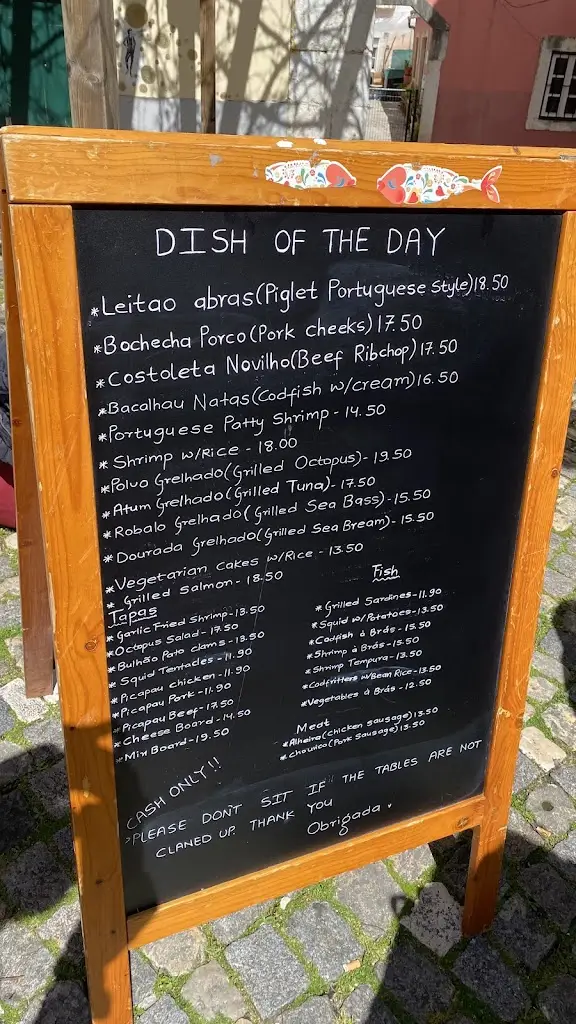 DISH OF THE DAY
*Leitao abras(Piglet Portuguese Style)18.50
*Bochecha Porco(Pork cheeks)17.50
*Costoleta Novilho(Beef Ribchop)17.50
*Bacalhau Natas(Codfish w/cream)16.50
*Portuguese Patty Shrimp - 14.50
*Shrimp w/Rice - 18.00
*Polvo Grelhado(Grilled Octopus)-19.50
*Atum Grelhado(Grilled Tuna)-17.50
*Robalo Grelhado(Grilled Sea Bass)-15.50
*Dourada Grelhado(Grilled Sea Bream)-15.50
*Vegetarian Cakes w/Rice - 13.50
*Grilled Salmon - 18.50
Tapas
*Garlic Fried Shrimp-13.50
*Octopus Salad - 17.50
*Bulhão Pato clams - 13.50
*Squid Tentacles - 11.90
*Picapau chicken - 11.90
*Picapau Pork - 11.90
*Picapau Beef - 17.50
*Cheese Board - 14.50
*Mix Board - 19.50
Fish
*Grilled Sardines-11.90
*Squid w/Potatoes-13.50
*Codfish à Brás-15.50
*Shrimp à Brás-15.50
*Shrimp Tempura-13.50
*Codfritters w/Bean Rice-13.50
*Vegetables à Brás-12.50
Meat
*Alheira(chicken sausage)13.50
*Chouriço(Pork Sausage)13.50
CASH ONLY!!
>PLEASE DON'T SIT IF THE TABLES ARE NOT
CLANED UP. THANK YOU
Obrigada